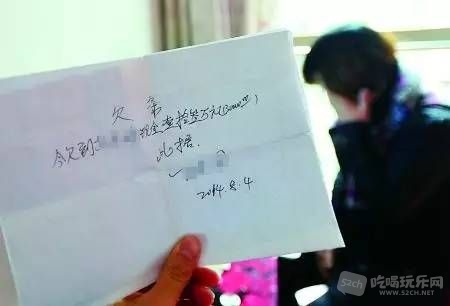 欠 条
今欠到 现金壹拾叁万元(130000元)
此据.
2014.8.4
52ch 吃喝玩乐网
WWW.52CH.NET